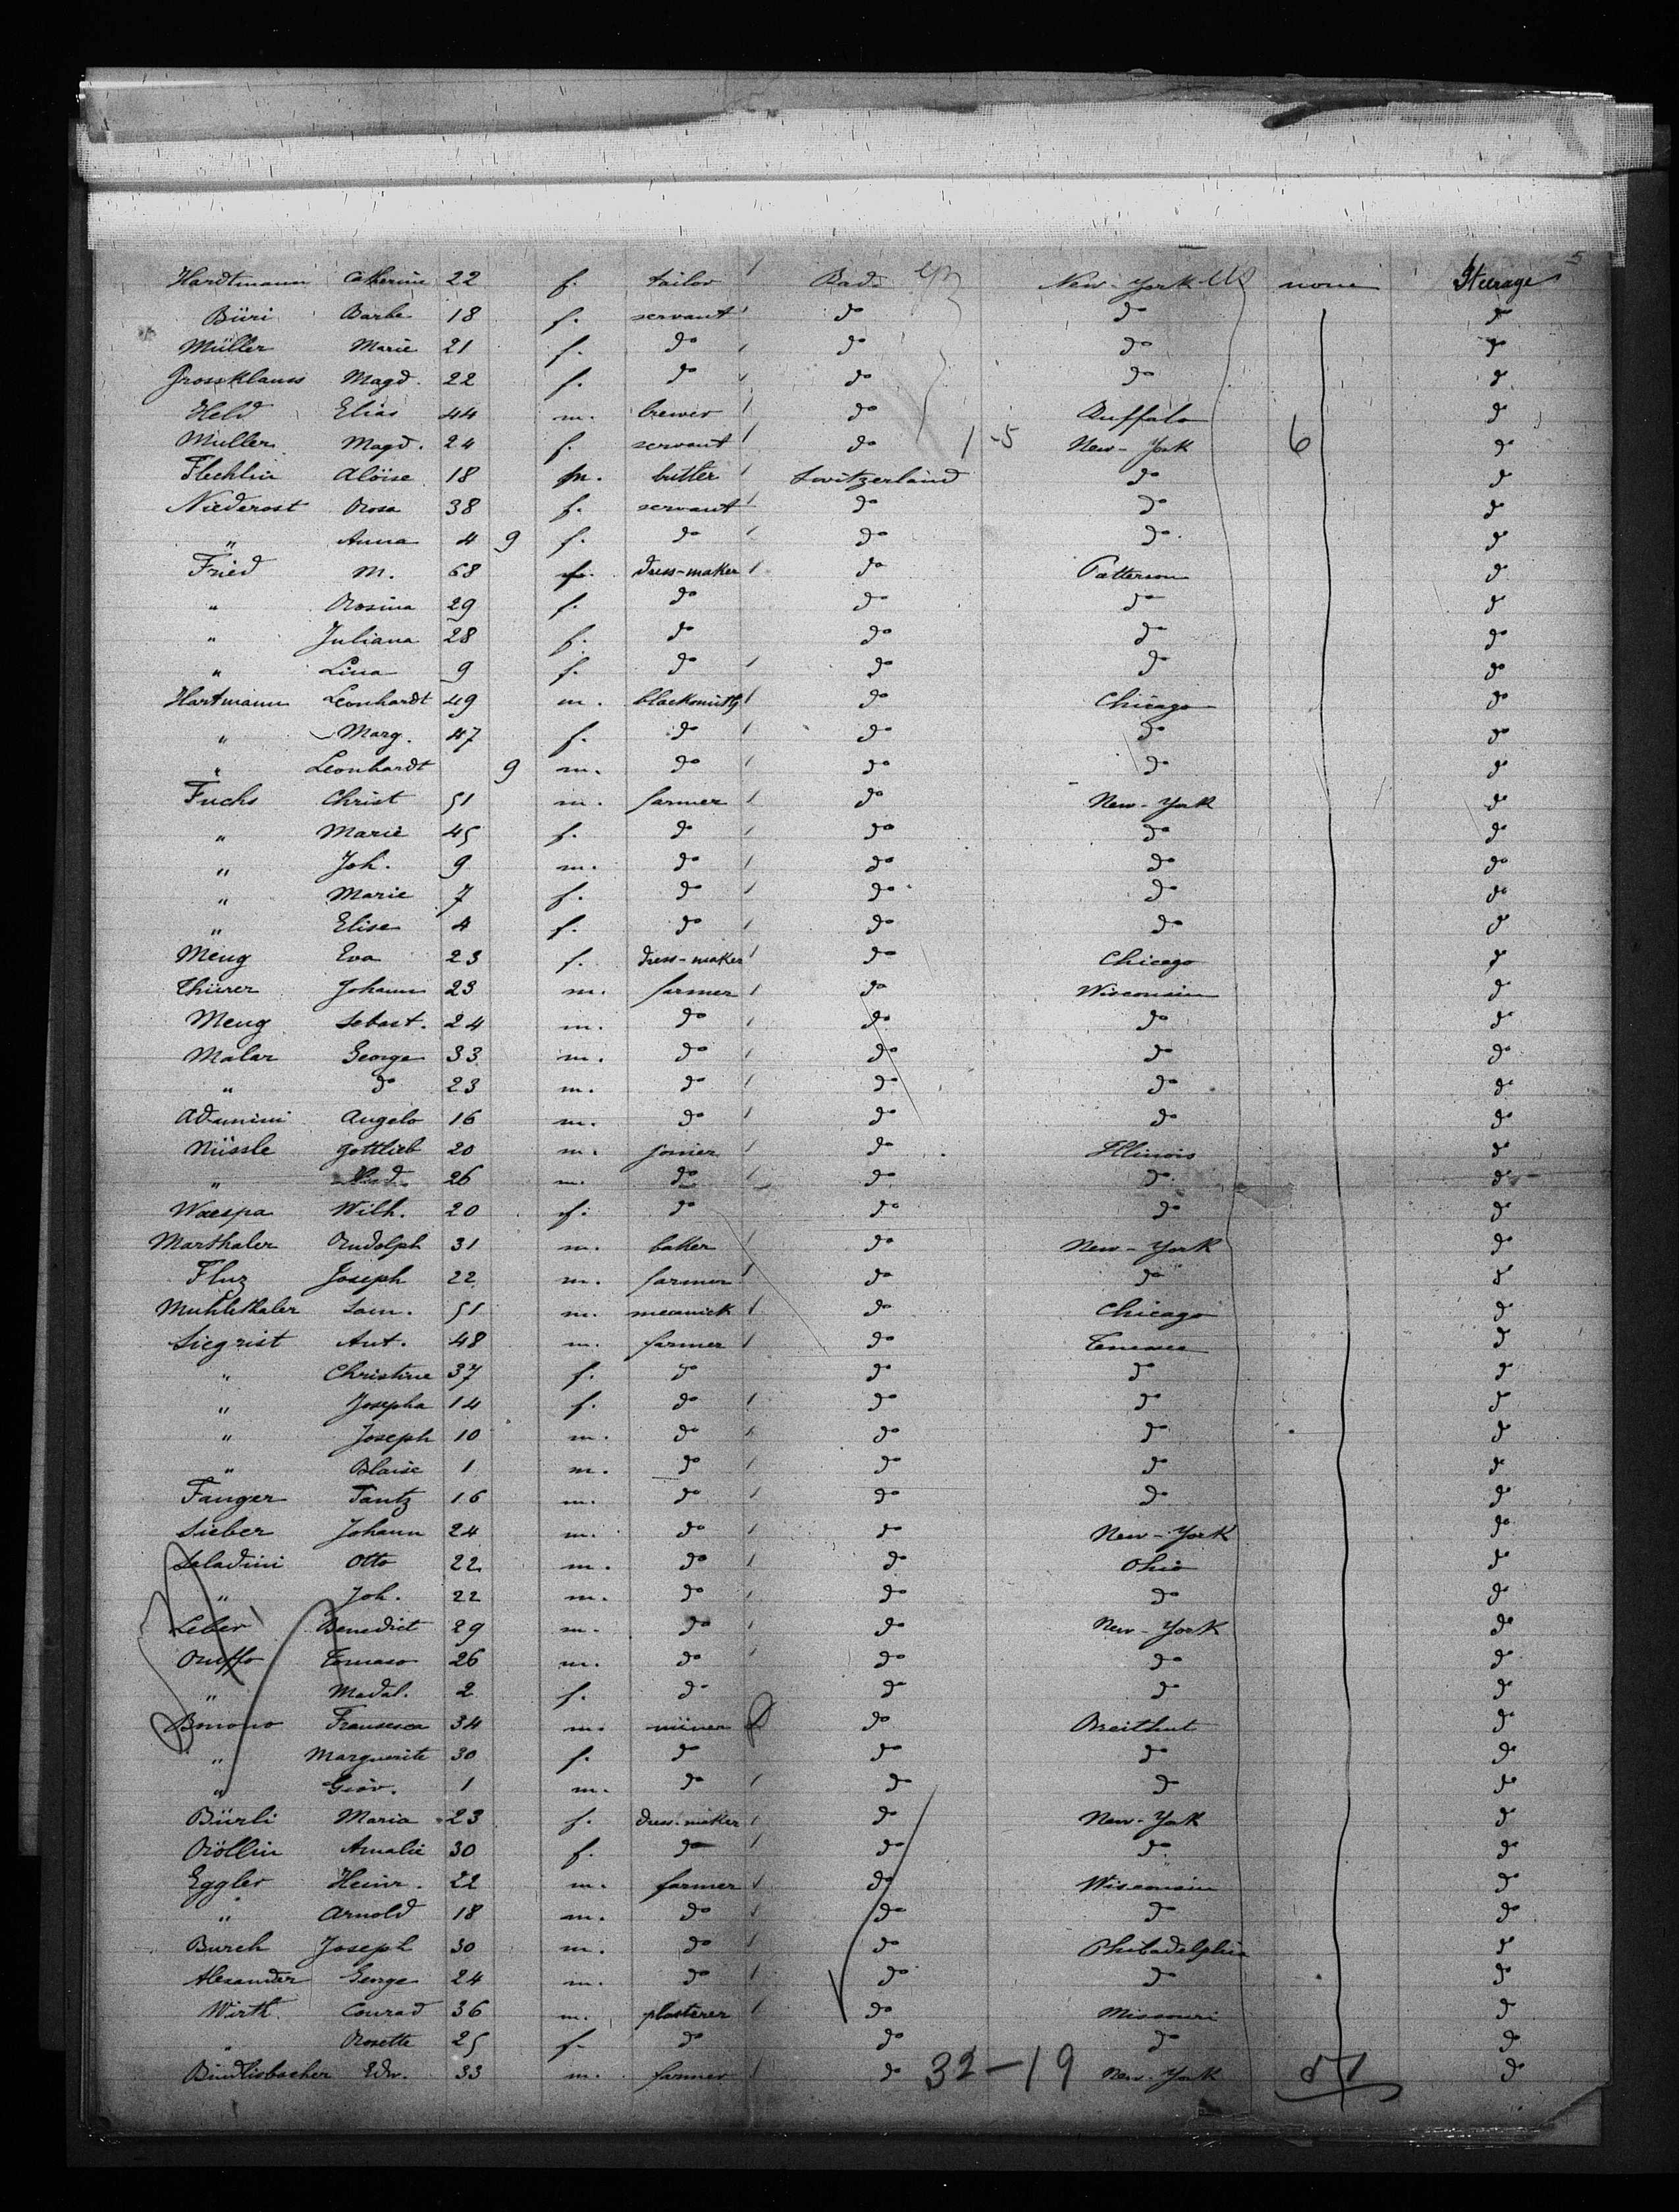 5
Hardtmann Catherine 22 f. tailor Bad. New-York none Steerage
Büri Barbe 18 f. servant do do do
Müller Marie 21 f. do do do do
Grossklauss Magd. 22 f. do do do do
Held Elias 44 m. brewer do Buffalo do
Muller Magd. 24 f. servant do 1-5 New-York 6 do
Flechlin Aloïse 18 m. buttler Switzerland do do
Niederost Rosa 38 f. servant do do do
" Anna 4 9 f. do do do. do
Fried M. 68 f. dress-maker do Patterson do
" Rosina 29 f. do do do do
" Juliana 28 f. do do do do
" Lina 9 f. do do do do
Hartmann Leonhardt 49 m. blacksmith do Chicago do
" Marg. 47 f. do do do do
" Leonhardt 9 m. do do do do
Fuchs Christ 51 m. farmer do New-York do
" Marie 45 f. do do do do
" Joh. 9 m. do do do do
" Marie 7 f. do do do do
" Elise 4 f. do do do do
Meng Eva 23 f. dress-maker do Chicago do
Thürer Johann 23 m. farmer do Wisconsin do
Meng Sebast. 24 m. do do do do
Malar George 33 m. do do do do
" do 23 m. do do do do
Adamini Angelo 16 m. do do do do
Nüssle Gottlieb 20 m. joiner do Illinois do
" 26 m. do do do do
Waespa Wilh. 20 f. do do do do
Marthaler Rudolph 31 m. baker do New-York do
Fluz Joseph 22 m. farmer do do do
Muhlethaler Sam. 51 m. mecanick do Chicago do
Siegrist Ant. 48 m. farmer do do
" Christine 37 f. do do do do
" Josepha 14 f. do do do do
" Joseph 10 m. do do do do
" Blaise 1 m. do do do do
Fanger 16 m. do do do do
Sieber Johann 24 m. do do New-York do
Saladini Otto 22 m. do do Ohio do
" Joh. 22 m. do do do do
Leber Benedict 29 m. do do New-York do
Ruffo Tomaso 26 m. do do do do
" Madal. 2 f. do do do do
Francesca 34 m. miner do do
" Marguerite 30 f. do do do do
" Giov. 1 m. do do do do
Bürli Maria 23 f. dress-maker do New-York do
Röllin Amalie 30 f. do do do do
Eggler Heinr. 22 m. farmer do Wisconsin do
" Arnold 18 m. do do do do
Burch Joseph 30 m. do do Philadelphia do
Alexander George 24 m. do do do do
Wirth Conrad 36 m. plasterer do Missouri do
" Rosette 25 f. do do do do
Bindlisbacher Edw. 33 m. farmer do 32-19 New-York 51 do